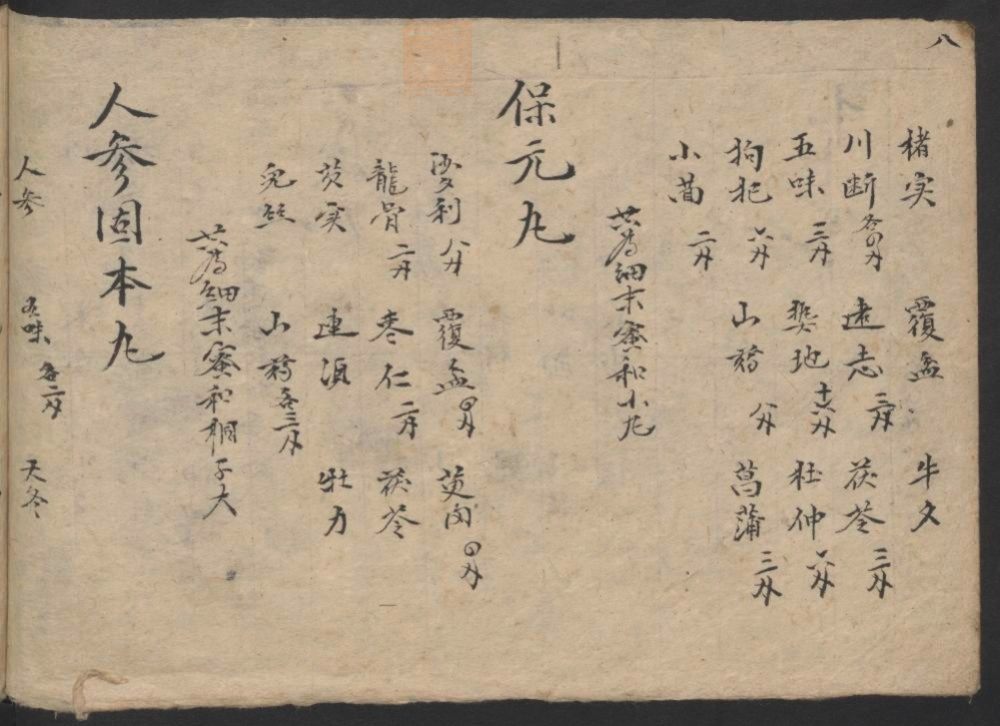 八
楮実 覆盆 牛夕
川断 各四分 遠志 三分 茯苓 三分
五味 三分 熟地 十六分 杜仲 六分
狗杞 六分 山藥 八分 菖蒲 三分
小茴 二分
共為細末蜜和小丸
保元丸
沙利 八分 覆盆 四分 萸肉 四分
龍骨 二分 枣仁 二分 茯苓
芡实 連須 牡力
兔丝 山藥 各三分
共為細末蜜和桐子大
人参固本丸
人参 五味 各二分 天冬